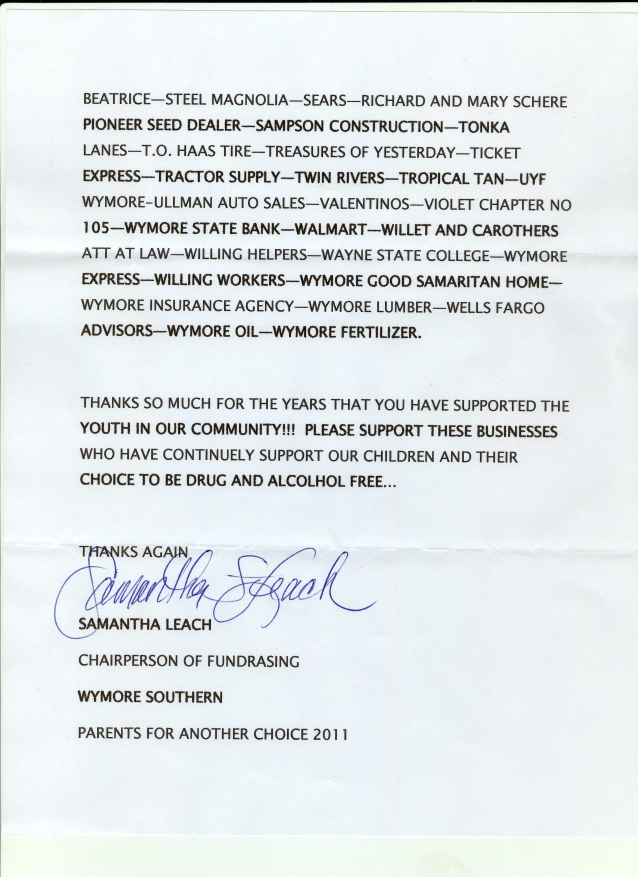 BEATRICE—STEEL MAGNOLIA—SEARS—RICHARD AND MARY SCHERE
PIONEER SEED DEALER—SAMPSON CONSTRUCTION—TONKA
LANES—T.O. HAAS TIRE—TREASURES OF YESTERDAY—TICKET
EXPRESS—TRACTOR SUPPLY—TWIN RIVERS—TROPICAL TAN—UYF
WYMORE-ULLMAN AUTO SALES—VALENTINOS—VIOLET CHAPTER NO
105—WYMORE STATE BANK—WALMART—WILLET AND CAROTHERS
ATT AT LAW—WILLING HELPERS—WAYNE STATE COLLEGE—WYMORE
EXPRESS—WILLING WORKERS—WYMORE GOOD SAMARITAN HOME—
WYMORE INSURANCE AGENCY—WYMORE LUMBER—WELLS FARGO
ADVISORS—WYMORE OIL—WYMORE FERTILIZER.
THANKS SO MUCH FOR THE YEARS THAT YOU HAVE SUPPORTED THE
YOUTH IN OUR COMMUNITY!!! PLEASE SUPPORT THESE BUSINESSES
WHO HAVE CONTINUELY SUPPORT OUR CHILDREN AND THEIR
CHOICE TO BE DRUG AND ALCOLHOL FREE...
THANKS AGAIN
Samantha S Leach
SAMANTHA LEACH
CHAIRPERSON OF FUNDRASING
WYMORE SOUTHERN
PARENTS FOR ANOTHER CHOICE 2011